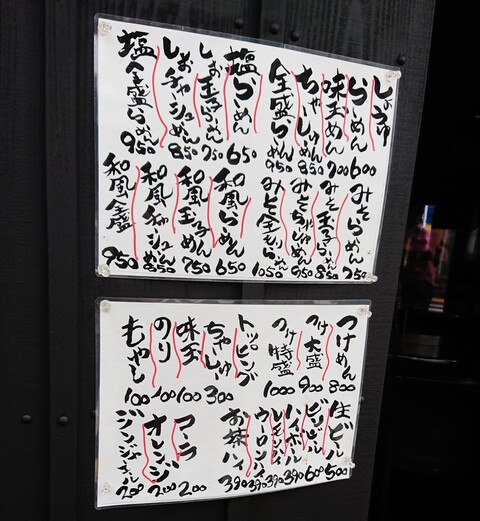 しょうゆらーめん 600
味玉めん 700
ちゃーしゅーめん 850
全盛らーめん 950
塩らーめん 650
しお玉子らーめん 750
しおチャーシューめん 850
塩全盛らーめん 950
みそらーめん 750
みそ玉子らーめん 850
みそちゃーしゅーめん 950
みそ全もりらーめん 1050
和風らーめん 650
和風玉子めん 750
和風チャーシューめん 850
和風全盛 950
つけめん 800
つけ大盛 900
つけ特盛 1000
トッピング
ちゃーしゅー 300
味玉 100
のり 100
もやし 100
生ビール 500
ビンビール 600
ハイボール 390
レモンハイ 390
ウーロンハイ 390
お茶ハイ 390
コーラ 200
オレンジ 200
ジンジャエール 200